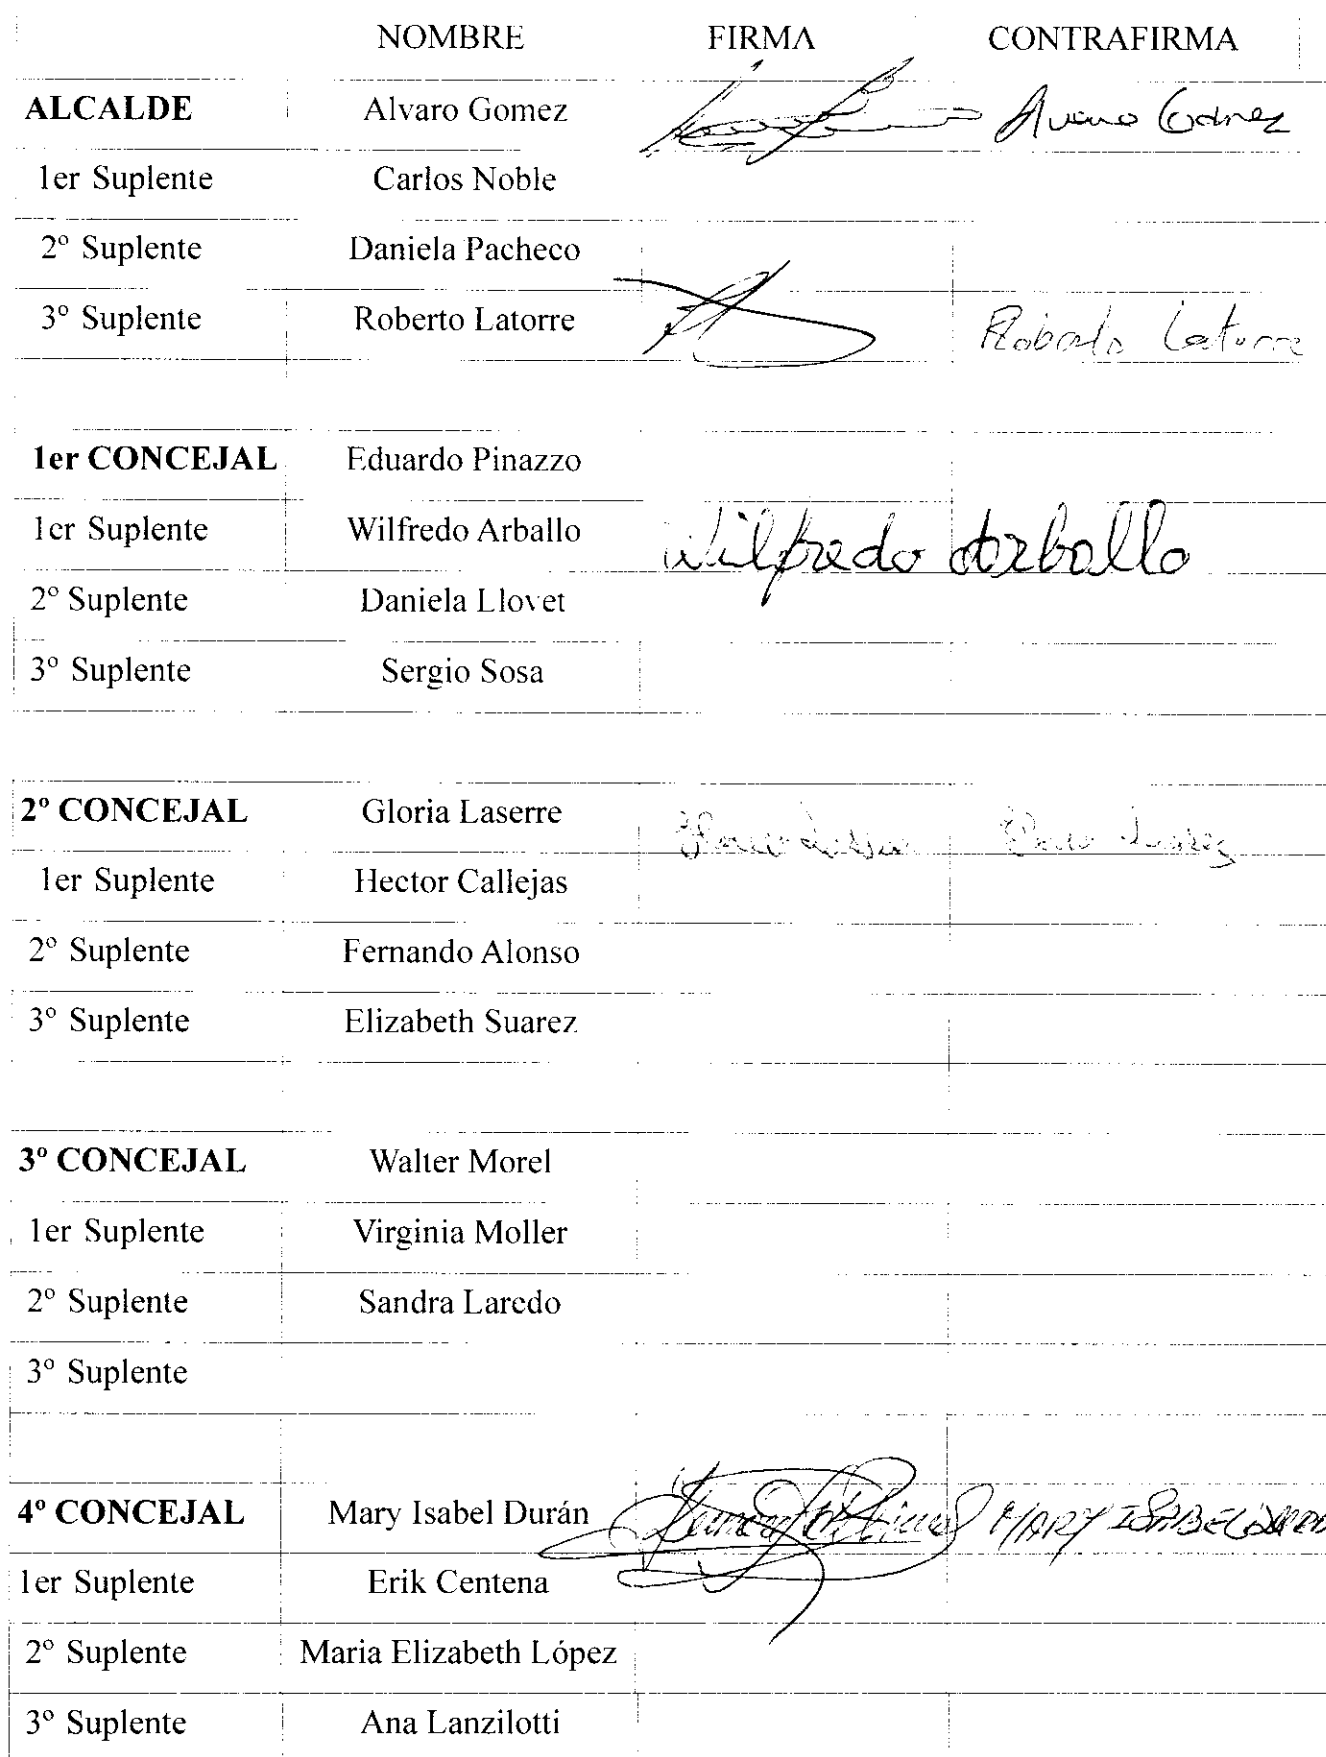 NOMBRE FIRMA CONTRAFIRMA
ALCALDE Alvaro Gomez Alvaro Gomez
1er Suplente Carlos Noble
2º Suplente Daniela Pacheco
3º Suplente Roberto Latorre Roberto Latorre
1er CONCEJAL Eduardo Pinazzo
1er Suplente Wilfredo Arballo Wilfredo Arballo
2º Suplente Daniela Llovet
3º Suplente Sergio Sosa
2º CONCEJAL Gloria Laserre
1er Suplente Hector Callejas
2º Suplente Fernando Alonso
3º Suplente Elizabeth Suarez
3º CONCEJAL Walter Morel
1er Suplente Virginia Moller
2º Suplente Sandra Laredo
3º Suplente
4º CONCEJAL Mary Isabel Durán MARY ISABEL
1er Suplente Erik Centena
2º Suplente Maria Elizabeth López
3º Suplente Ana Lanzilotti